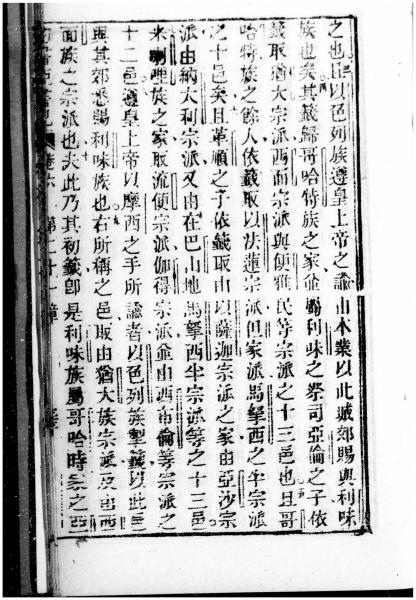 之也且以色列族遵皇上帝之諭由本業以此城郊賜與利味
族也矣其籤歸哥哈特族之家竝屬利味之祭司亞倫之子依
籤取猶大宗派西面宗派與便雅民等宗派之十三邑也且哥
哈特族之餘人依籤取以法蓮宗派但家派馬拏西之半宗派
之十邑矣且革順之子依籤取由以薩迦宗派之家由亞沙宗
派由納大利宗派又由在巴山地馬拏西半宗派等之十三邑
米喇哩族之家取流便宗派伽得宗派竝由西布倫等宗派之
十二邑遵皇上帝以摩西之手所諭者以色列族掣籤以此邑
與其郊悉賜利味族也右所稱之邑取由猶大族宗派及由西
面族之宗派也夫此乃其初籤卽是利味族屬哥哈時家之亞
卷六 第二十一章